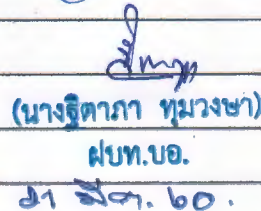 (นางฐิตาภา ทุมวงษา)
ฝบท.บอ.
๒๑ มีค. ๖๐.